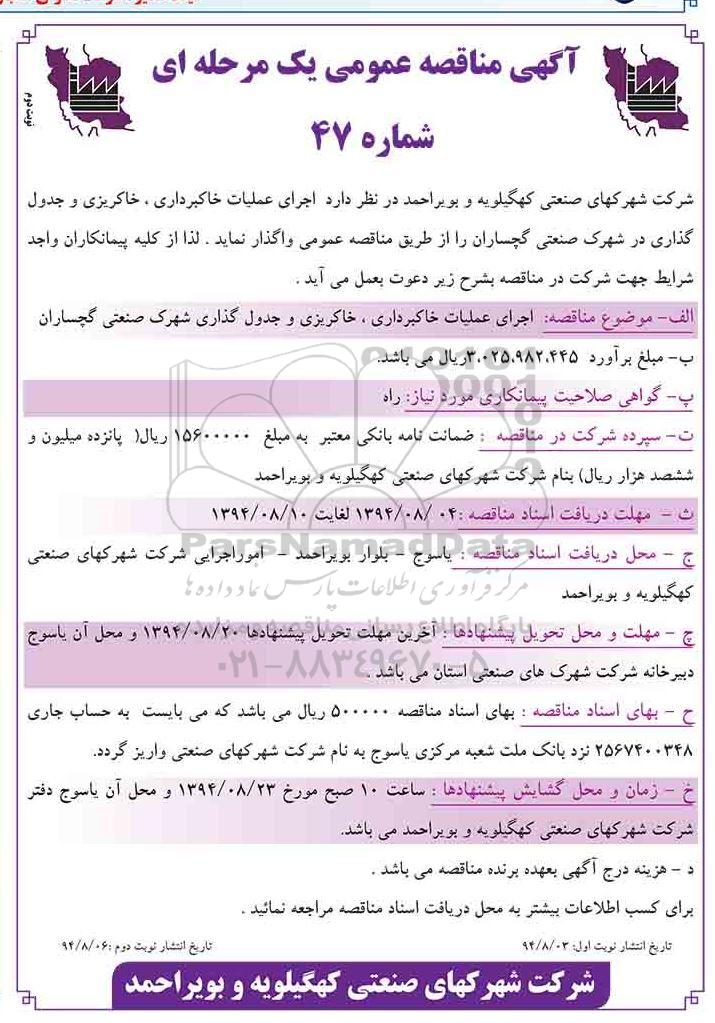 آگهی مناقصه عمومی یک مرحله ای
شماره ۴۷
نوبت دوم
شرکت شهرکهای صنعتی کهگیلویه و بویراحمد در نظر دارد اجرای عملیات خاکبرداری ، خاکریزی و جدول
گذاری در شهرک صنعتی گچساران را از طریق مناقصه عمومی واگذار نماید . لذا از کلیه پیمانکاران واجد
شرایط جهت شرکت در مناقصه بشرح زیر دعوت بعمل می آید .
الف- موضوع مناقصه: اجرای عملیات خاکبرداری ، خاکریزی و جدول گذاری شهرک صنعتی گچساران
ب- مبلغ برآورد ۳،۰۲۵،۹۸۲،۴۴۵ریال می باشد.
پ- گواهی صلاحیت پیمانکاری مورد نیاز: راه
ت- سپرده شرکت در مناقصه : ضمانت نامه بانکی معتبر به مبلغ ۱۵۶۰۰۰۰۰ ریال( پانزده میلیون و
ششصد هزار ریال) بنام شرکت شهرکهای صنعتی کهگیلویه و بویراحمد
ث - مهلت دریافت اسناد مناقصه :۰۴ /۱۳۹۴/۰۸ لغایت ۱۳۹۴/۰۸/۱۰
ParsNamadData
ج - محل دریافت اسناد مناقصه : یاسوج - بلوار بویراحمد - اموراجرایی شرکت شهرکهای صنعتی
کهگیلویه و بویراحمد
مرکز فرآوری اطلاعات پارس نماد داده ها
چ - مهلت و محل تحویل پیشنهادها : آخرین مهلت تحویل پیشنهادها ۱۳۹۴/۰۸/۲۰ و محل آن یاسوج
دبیرخانه شرکت شهرک های صنعتی استان می باشد .
۰۲۱-۸۸۳۴۹۶۷۰-۵
ح - بهای اسناد مناقصه : بهای اسناد مناقصه ۵۰۰۰۰۰ ریال می باشد که می بایست به حساب جاری
۲۵۶۷۴۰۰۳۴۸ نزد بانک ملت شعبه مرکزی یاسوج به نام شرکت شهرکهای صنعتی واریز گردد.
خ - زمان و محل گشایش پیشنهادها : ساعت ۱۰ صبح مورخ ۱۳۹۴/۰۸/۲۳ و محل آن یاسوج دفتر
شرکت شهرکهای صنعتی کهگیلویه و بویراحمد می باشد.
د - هزینه درج آگهی بعهده برنده مناقصه می باشد .
برای کسب اطلاعات بیشتر به محل دریافت اسناد مناقصه مراجعه نمائید .
تاریخ انتشار نوبت اول: ۹۴/۸/۰۳ تاریخ انتشار نوبت دوم :۹۴/۸/۰۶
شرکت شهرکهای صنعتی کهگیلویه و بویراحمد